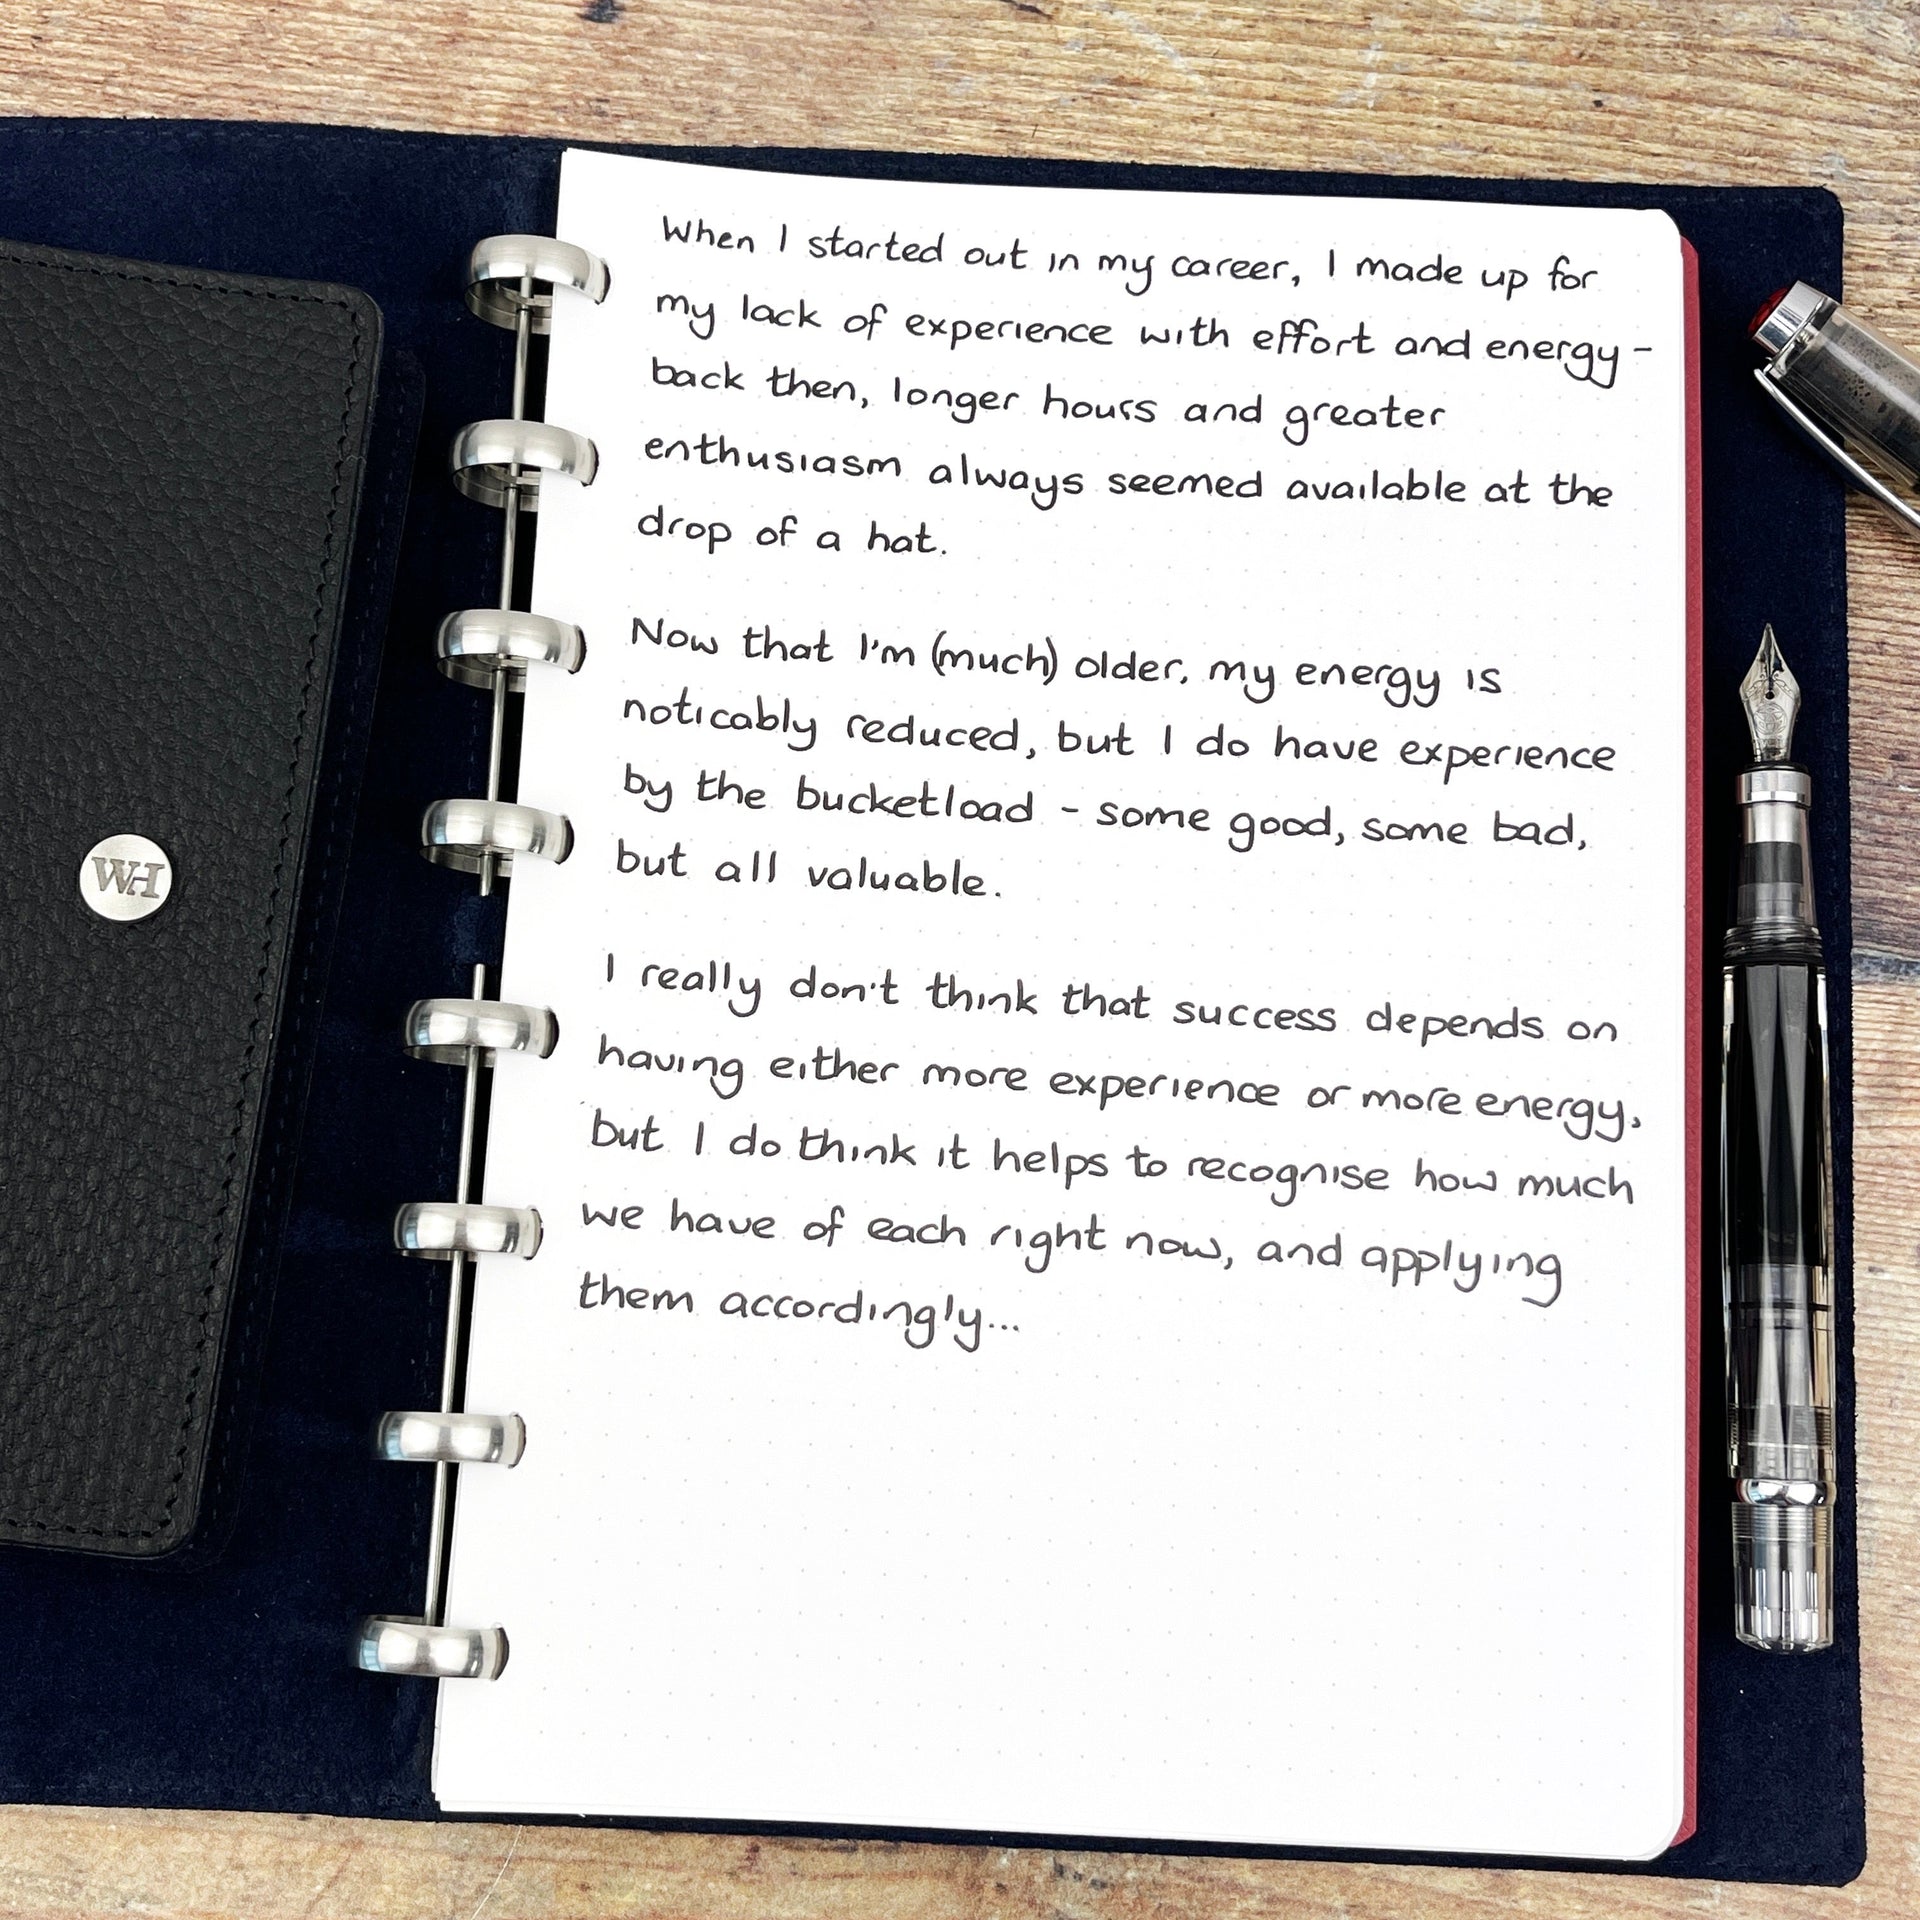 When I started out in my career, I made up for
my lack of experience with effort and energy -
back then, longer hours and greater
enthusiasm always seemed available at the
drop of a hat.
Now that I'm (much) older, my energy is
noticably reduced, but I do have experience
by the bucketload - some good, some bad,
but all valuable.
I really don't think that success depends on
having either more experience or more energy,
but I do think it helps to recognise how much
we have of each right now, and applying
them accordingly...
WH